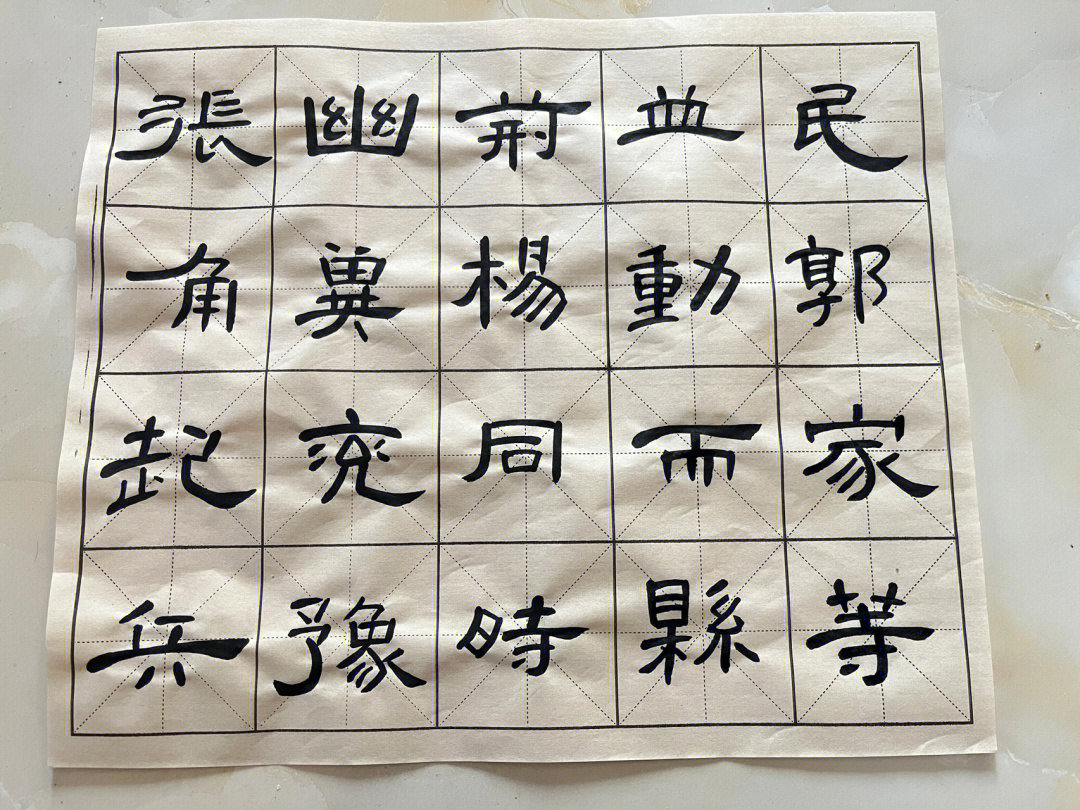 張角起兵
幽冀兗豫
荊楊同時
並動而縣
民郭家等